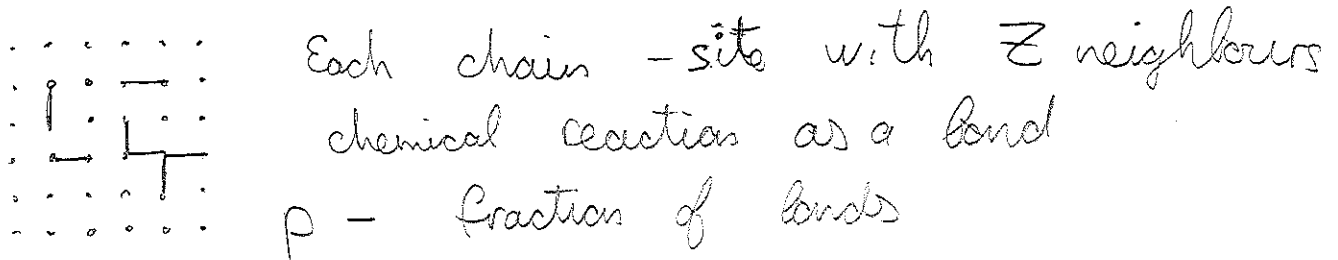 Each chain - site with Z neighbours
chemical reaction as a bond
p - fraction of bonds